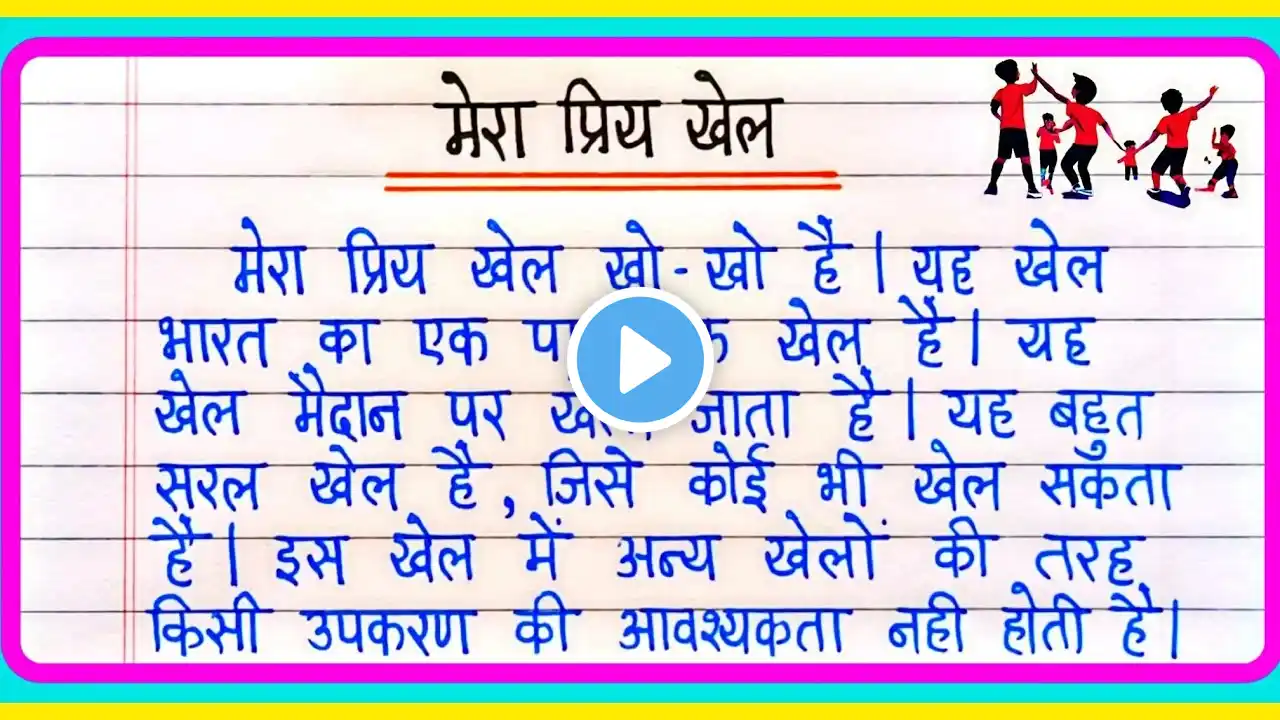 मेरा प्रिय खेल
मेरा प्रिय खेल खो-खो है। यह खेल
भारत का एक खेल है। यह
खेल मैदान पर जाता है। यह बहुत
सरल खेल है, जिसे कोई भी खेल सकता
है। इस खेल में अन्य खेलों की तरह
किसी उपकरण की आवश्यकता नही होती है।